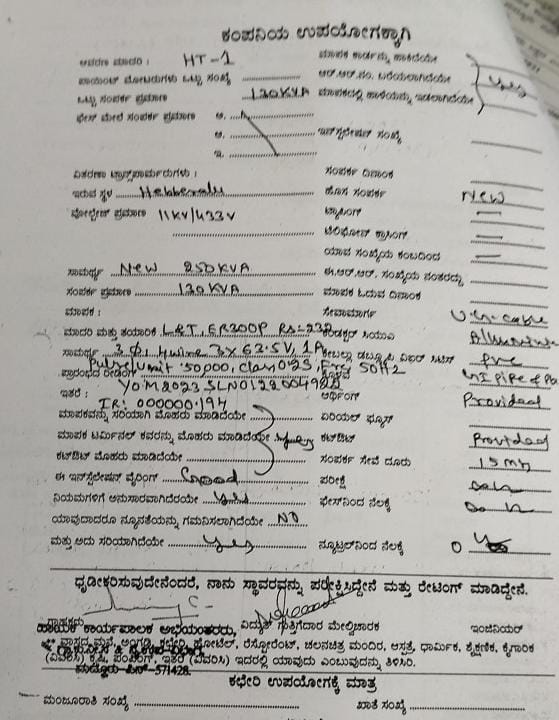 ಕಂಪನಿಯ ಉಪಯೋಗಕ್ಕಾಗಿ
ಆವರಣ ಮಾದರಿ : HT-1 ಮಾಪಕ ಕಾರ್ಡನ್ನು ಹಾಕಿದೆಯೇ
ಪಾಯಿಂಟ್ ಮೋಟರುಗಳು ಒಟ್ಟು ಸಂಖ್ಯೆ ಆರ್.ಆರ್.ನಂ. ಬರೆಯಲಾಗಿದೆಯೇ yes
ಒಟ್ಟು ಸಂಪರ್ಕ ಪ್ರಮಾಣ 120KVA ಮಾಪಕದಲ್ಲಿ ಹಾಳೆಯನ್ನು ಇಡಲಾಗಿದೆಯೇ
ಫೇಸ್ ಮೇಲೆ ಸಂಪರ್ಕ ಪ್ರಮಾಣ ಅ.
ಆ. ಇನ್‌ಸ್ಟಲೇಷನ್ ಸಂಖ್ಯೆ
ಇ.
ವಿತರಣಾ ಟ್ರಾನ್ಸ್‌ಫಾರ್ಮರುಗಳು : ಸಂಪರ್ಕ ದಿನಾಂಕ
ಇರುವ ಸ್ಥಳ Hebberalu ಹೊಸ ಸಂಪರ್ಕ New
ವೋಲ್ಟೇಜ್ ಪ್ರಮಾಣ 11KV/433V ಟ್ಯಾಪಿಂಗ್ —
ಟೆಲಿಫೋನ್ ಕ್ರಾಸಿಂಗ್ —
ಯಾವ ಸಂಖ್ಯೆಯ ಕಂಬದಿಂದ —
ಸಾಮರ್ಥ್ಯ New 250KVA ಈ.ಆರ್.ಆರ್. ಸಂಖ್ಯೆಯ ನಂತರದ್ದು
ಸಂಪರ್ಕ ಪ್ರಮಾಣ 120KVA ಮಾಪಕ ಓದುವ ದಿನಾಂಕ
ಮಾಪಕ : ಸೇವಾಮಾರ್ಗ U.G-cable
ಮಾದರಿ ಮತ್ತು ತಯಾರಿಕೆ L&T, ER300P RS-232 ಕಂಡಕ್ಟರ್ ಸಿಯುವಿ
ಸಾಮರ್ಥ್ಯ 3Φ, 4wire 3x63.5V, 1A
ಪ್ರಾರಂಭದ ರೀಡಿಂಗ್ Pulse/unit 50000, class 0.2S, Frq 50Hz GI Pipe
YOM 2023 SLNO ಅರ್ಥಿಂಗ್ Provided
ಇತರೆ : IR: 000000.194
ಮಾಪಕವನ್ನು ಸರಿಯಾಗಿ ಮೊಹರು ಮಾಡಿದೆಯೇ ಏರಿಯಲ್ ಫ್ಯೂಸ್
ಮಾಪಕ ಟರ್ಮಿನಲ್ ಕವರನ್ನು ಮೊಹರು ಮಾಡಿದೆಯೇ ಕಟ್‌ಔಟ್ Provided
ಕಟ್‌ಔಟ್ ಮೊಹರು ಮಾಡಿದೆಯೇ ಸಂಪರ್ಕ ಸೇವೆ ದೂರು 15 Mtr
ಈ ಇನ್‌ಸ್ಟಲೇಷನ್ ವೈರಿಂಗ್ Good ಪರೀಕ್ಷೆ
ನಿಯಮಗಳಿಗೆ ಅನುಸಾರವಾಗಿದೆಯೇ Yes ಫೇಸ್‌ನಿಂದ ನೆಲಕ್ಕೆ
ಯಾವುದಾದರೂ ನ್ಯೂನತೆಯನ್ನು ಗಮನಿಸಲಾಗಿದೆಯೇ NO
ಮತ್ತು ಅದು ಸರಿಯಾಗಿದೆಯೇ Yes ನ್ಯೂಟ್ರಲ್‌ನಿಂದ ನೆಲಕ್ಕೆ
ಧೃಡೀಕರಿಸುವುದೇನೆಂದರೆ, ನಾನು ಸ್ಥಾವರವನ್ನು ಪರೀಕ್ಷಿಸಿದ್ದೇನೆ ಮತ್ತು ರೇಟಿಂಗ್ ಮಾಡಿದ್ದೇನೆ.
ಗ್ರಾಹಕರು ವಿದ್ಯುತ್ ಗುತ್ತಿಗೆದಾರ ಮೇಲ್ವಿಚಾರಕ ಇಂಜಿನಿಯರ್
ಸಹಾಯಕ ಕಾರ್ಯಪಾಲಕ ಅಭಿಯಂತರರು,
** ವಾಸದ ಮನೆ, ಅಂಗಡಿ, ಕಛೇರಿ, ಹೋಟೆಲ್, ರೆಸ್ಟೋರೆಂಟ್, ಚಲನಚಿತ್ರ ಮಂದಿರ, ಆಸ್ಪತ್ರೆ, ಧಾರ್ಮಿಕ, ಶೈಕ್ಷಣಿಕ, ಕೈಗಾರಿಕ
(ವಿವರಿಸಿ) ಕೃಷಿ, ಪಂಪಿಂಗ್, ಇತರೆ (ವಿವರಿಸಿ) ಇದರಲ್ಲಿ ಯಾವುದು ಎಂಬುವನ್ನು ತಿಳಿಸಿರಿ.
ಮದ್ದೂರು ಪಿನ್-571428.
ಕಛೇರಿ ಉಪಯೋಗಕ್ಕೆ ಮಾತ್ರ
ಮಂಜೂರಾತಿ ಸಂಖ್ಯೆ ಖಾತೆ ಸಂಖ್ಯೆ